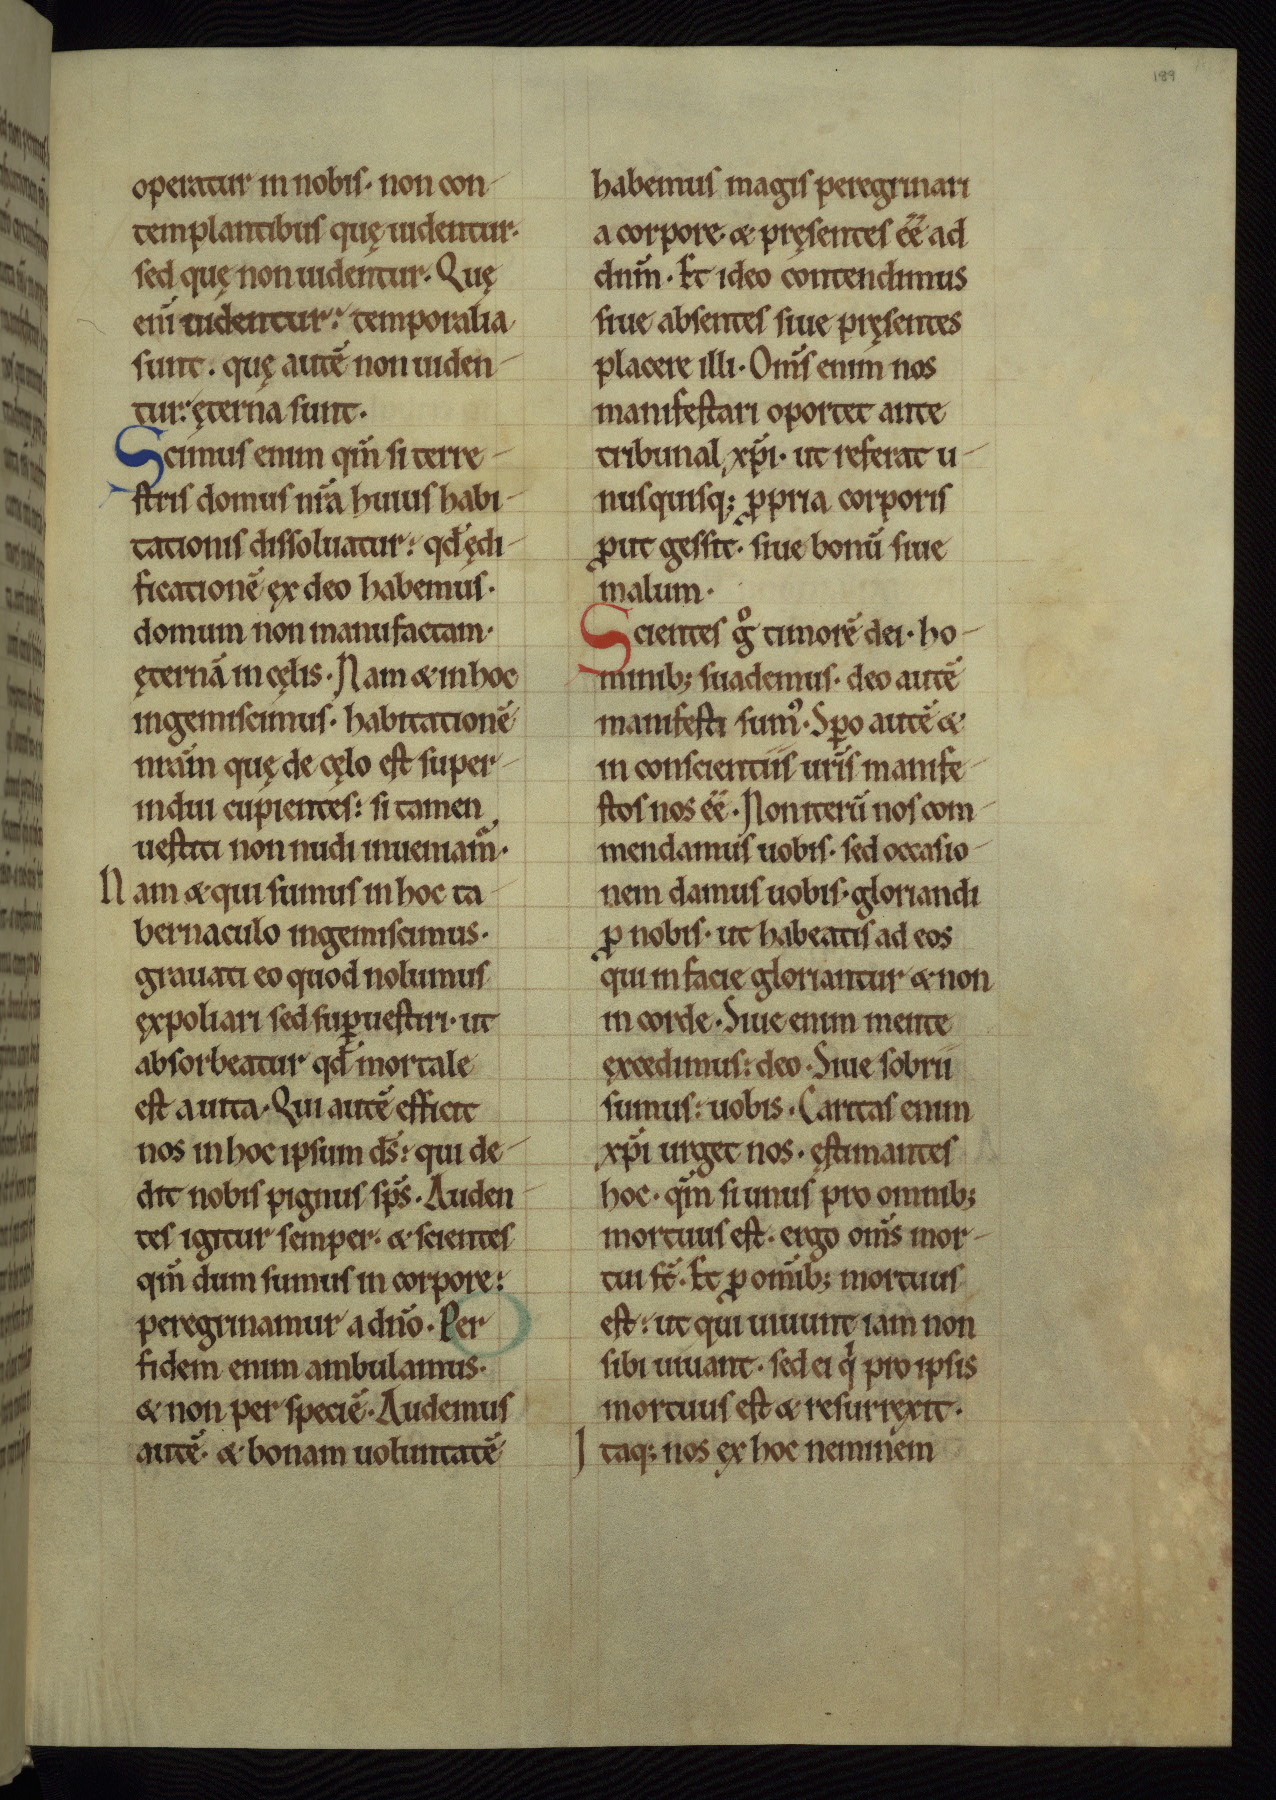 189
operatur in nobis· non con-
templantibus quę uidentur·
sed quę non uidentur· Quę
eni̅ uidentur: temporalia
sunt. quę aute̅ non uiden-
tur: ęterna sunt·
Scimus enim qm̅ si terre-
stris domus nr̅a huius habi-
tationis dissoluatur: qd̅ ędi-
ficatione̅ ex deo habemus·
domum non manufactam·
ęterna̅ in cęlis· Nam & in hoc
ingemiscimus· habitatione̅
nra̅m quę de cęlo est super-
indui cupientes: si tamen
uestiti non nudi inueniam̅·
Nam & qui sumus in hoc ta-
bernaculo ingemiscimus·
grauati eo quod nolumus
expoliari sed sup̲uestiri· ut
absorbeatur qd̅ mortale
est a uita· Qui aute̅ efficit
nos in hoc ipsum ds̅: qui de-
dit nobis pignus sps̅· Auden-
tes igitur semper· & scientes
qm̅ dum sumus in corpore:
peregrinamur a dn̅o· Per
fidem enim ambulamus·
& non per specie̅· Audemus
aute̅· & bonam uoluntate̅
habemus magis peregrinari
a corpore· & pręsentes e̅e̅ ad
dnm̅· Et ideo contendimus
siue absentes siue pręsentes
placere illi· Om̅s enim nos
manifestari oportet ante
tribunal xp̅i· ut referat u-
nusquisq; ꝓpria corporis
ꝓut gessit· siue bonu̅ siue
malum·
Scientes gͦ timore̅ dei· ho-
minib; suademus· deo aute̅
manifesti sumꝰ· Spo aute̅ &
in conscientiis uris̅ manife-
stos nos e̅e̅· Non iteru̅ nos com-
mendamus uobis· sed occasio-
nem damus uobis· gloriandi
ꝓ nobis· ut habeatis ad eos
qui in facie gloriantur & non
in corde· Siue enim mente
excedimus: deo· Siue sobrii
sumus: uobis· Caritas enim
xp̅i urget nos· ęstimantes
hoc· qm̅ si unus pro omnib;
mortuus est· ergo om̅s mor-
tui st̅· Et ꝓ om̅ib; mortuus
est: ut qui uiuunt iam non
sibi uiuant· sed ei qͥ pro ipsis
mortuus est & resurrexit·
Itaq; nos ex hoc neminem